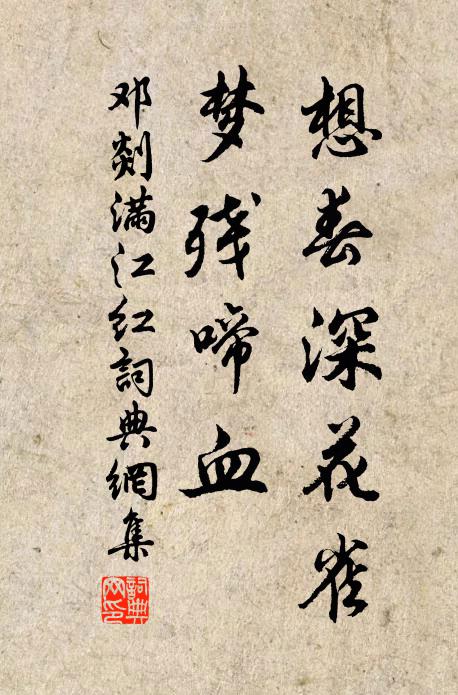 想春深花雀
梦残啼血
邓剡满江红詞典網集
詞典
网印